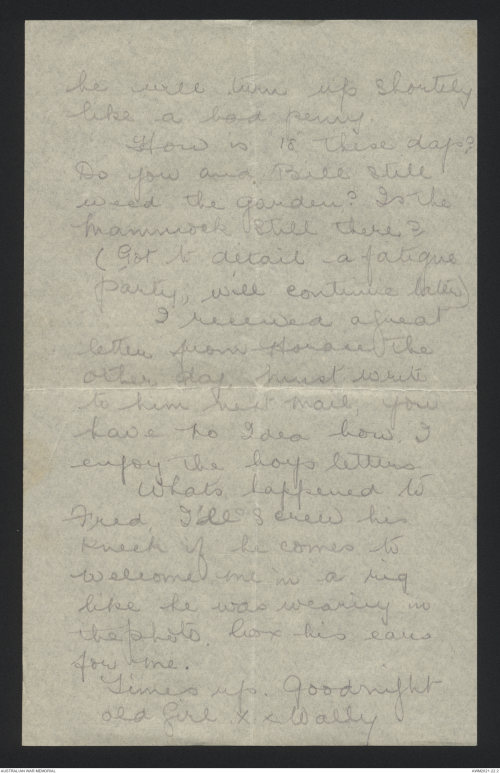 he will turn up shortily
like a bad penny.
How is 18 these days?
Do you and Bill still
weed the garden? Is the
hammock still there?
(Got to detail a fatigue
party, will continue later)
I received a great
letter from Horace the
other day, must write
to him next mail, you
have no Idea how I
enjoy the boys letters
Whats happened to
Fred, I'll screw his
kneck if he comes to
welcome me in a rig
like he was wearing in
the photo. box his ears
for me.
Times up. Goodnight
old girl x x Wally
AUSTRALIAN WAR MEMORIAL